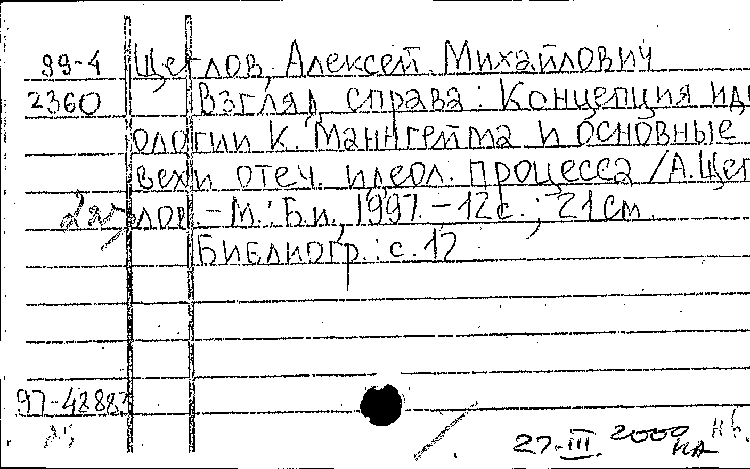 99-4 Щеглов, Алексей Михайлович
2360 Взгляд справа: Концепция иде
ологии К. Маннгейма и основные
вехи отеч. идеол. процесса / А. Щег
лов. - М.: Б.и., 1997. - 12 с.; 21 см.
Библиогр.: с. 12
97-48883
27-III 2000